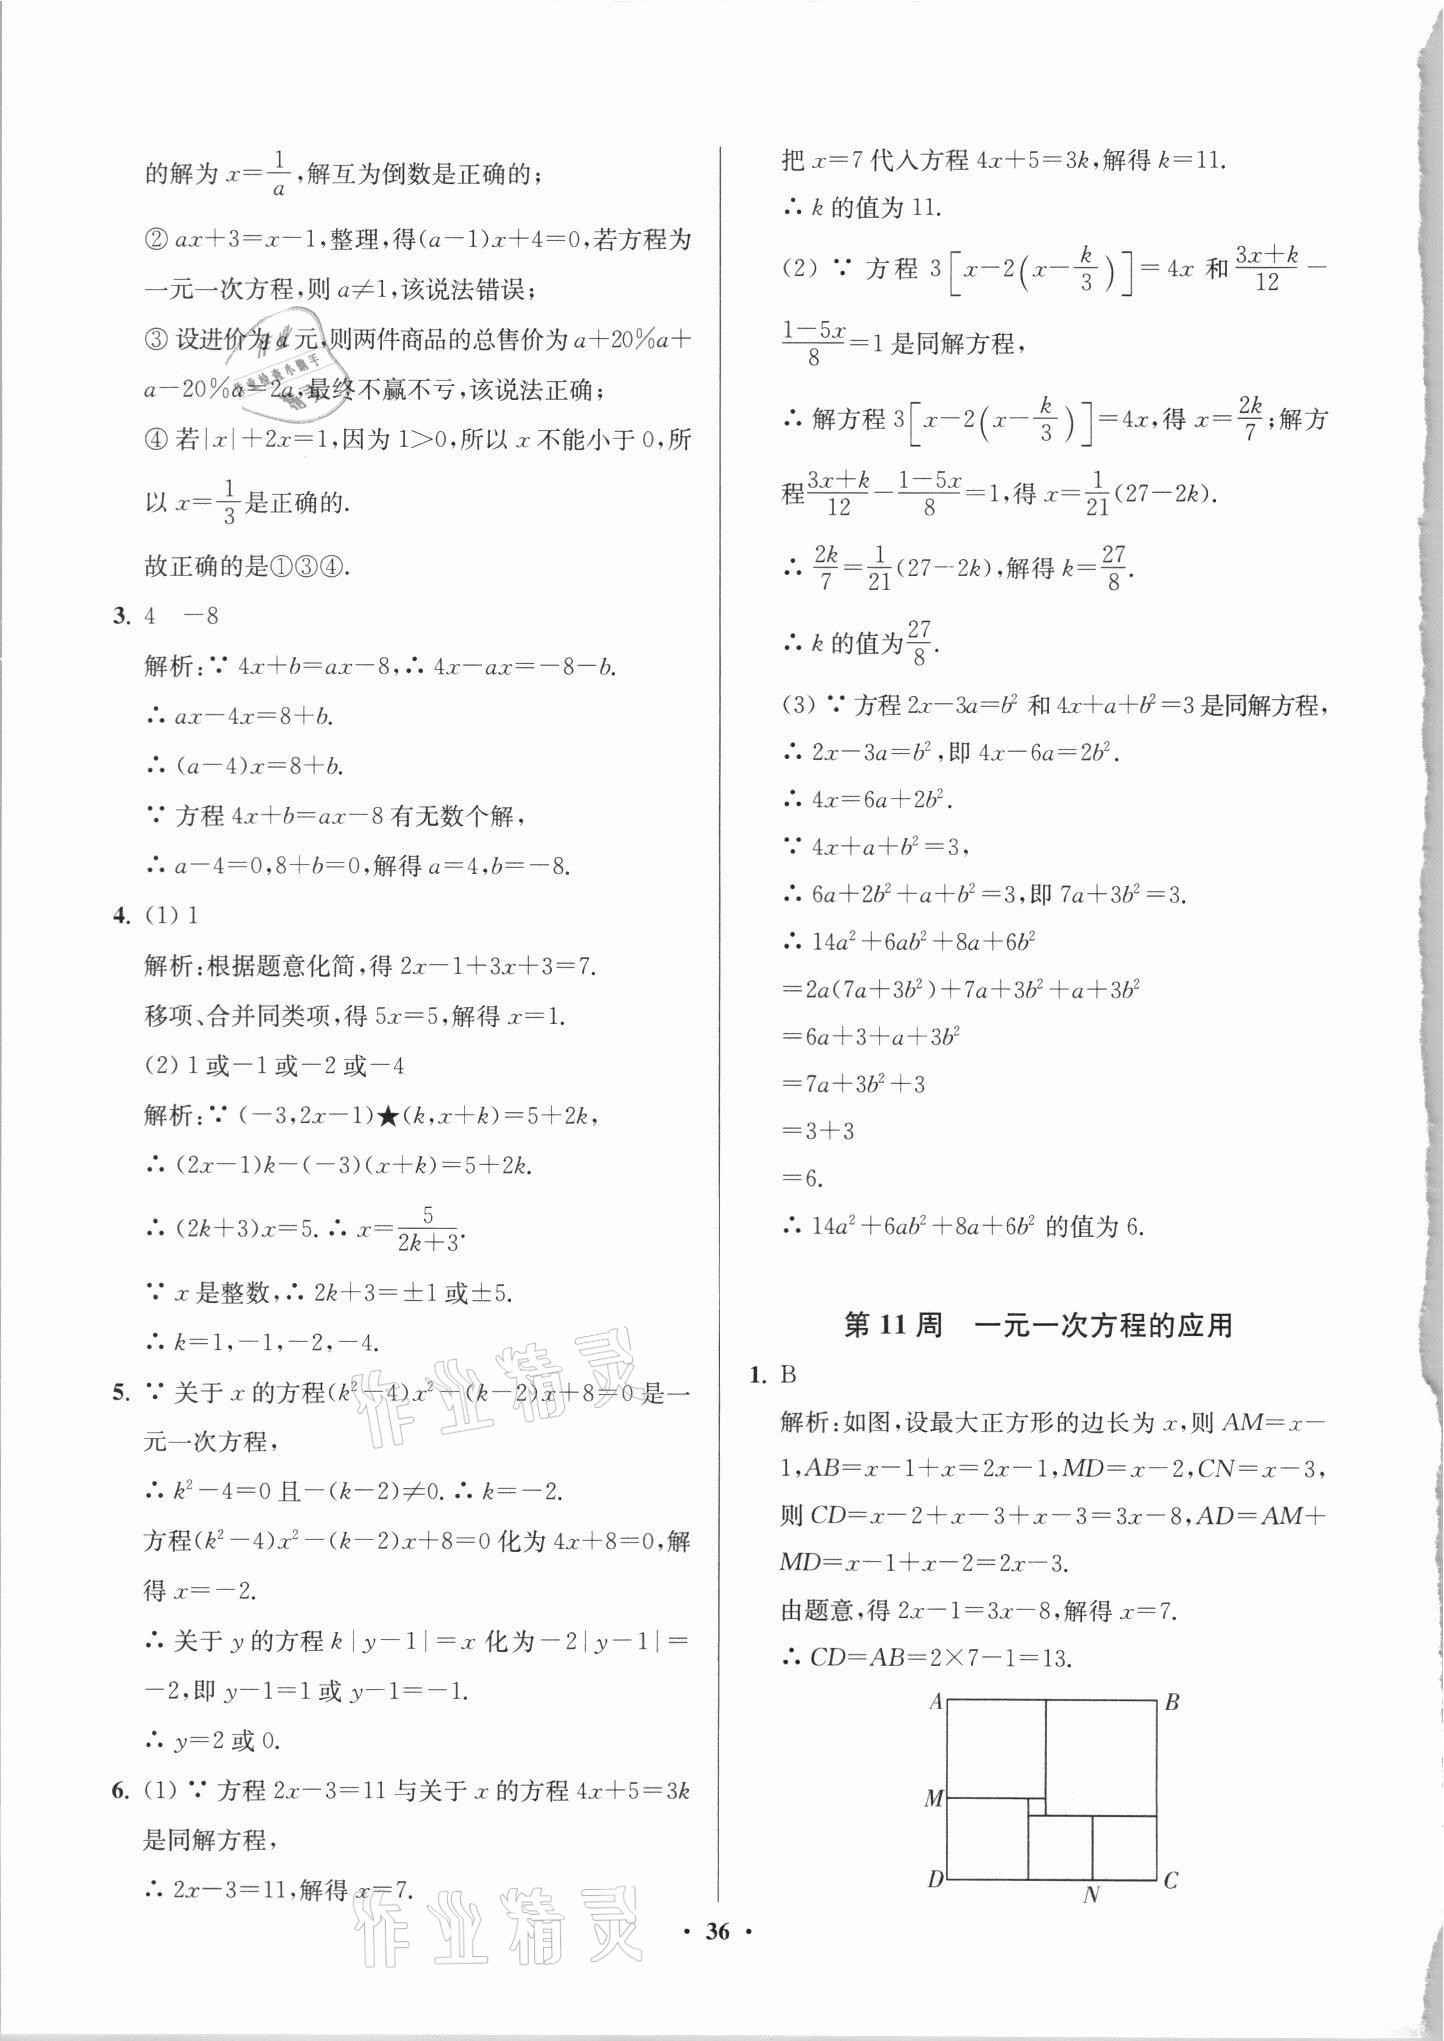 的解为 x=1/a,解互为倒数是正确的;
② ax+3=x-1,整理,得(a-1)x+4=0,若方程为
一元一次方程,则 a≠1,该说法错误;
③ 设进价为 a 元,则两件商品的总售价为 a+20%a+
a-20%a=2a,最终不赢不亏,该说法正确;
④ 若|x|+2x=1,因为 1>0,所以 x 不能小于 0,所
以 x=1/3是正确的.
故正确的是①③④.
3. 4 -8
解析:∵ 4x+b=ax-8,∴ 4x-ax=-8-b.
∴ ax-4x=8+b.
∴ (a-4)x=8+b.
∵ 方程 4x+b=ax-8 有无数个解,
∴ a-4=0,8+b=0,解得 a=4,b=-8.
4. (1) 1
解析:根据题意化简,得 2x-1+3x+3=7.
移项、合并同类项,得 5x=5,解得 x=1.
(2) 1 或-1 或-2 或-4
解析:∵ (-3,2x-1)★(k,x+k)=5+2k,
∴ (2x-1)k-(-3)(x+k)=5+2k.
∴ (2k+3)x=5. ∴ x=5/(2k+3).
∵ x 是整数,∴ 2k+3=±1 或±5.
∴ k=1,-1,-2,-4.
5. ∵ 关于 x 的方程(k²-4)x²-(k-2)x+8=0 是一
元一次方程,
∴ k²-4=0 且-(k-2)≠0. ∴ k=-2.
方程(k²-4)x²-(k-2)x+8=0 化为 4x+8=0,解
得 x=-2.
∴ 关于 y 的方程 k|y-1|=x 化为-2|y-1|=
-2,即 y-1=1 或 y-1=-1.
∴ y=2 或 0.
6. (1) ∵ 方程 2x-3=11 与关于 x 的方程 4x+5=3k
是同解方程,
∴ 2x-3=11,解得 x=7.
把 x=7 代入方程 4x+5=3k,解得 k=11.
∴ k 的值为 11.
(2) ∵ 方程 3[x-2(x-k/3)]=4x 和(3x+k)/12-
(1-5x)/8=1 是同解方程,
∴ 解方程 3[x-2(x-k/3)]=4x,得 x=2k/7;解方
程(3x+k)/12-(1-5x)/8=1,得 x=1/21(27-2k).
∴ 2k/7=1/21(27-2k),解得 k=27/8.
∴ k 的值为27/8.
(3) ∵ 方程 2x-3a=b² 和 4x+a+b²=3 是同解方程,
∴ 2x-3a=b²,即 4x-6a=2b².
∴ 4x=6a+2b².
∵ 4x+a+b²=3,
∴ 6a+2b²+a+b²=3,即 7a+3b²=3.
∴ 14a²+6ab²+8a+6b²
=2a(7a+3b²)+7a+3b²+a+3b²
=6a+3+a+3b²
=7a+3b²+3
=3+3
=6.
∴ 14a²+6ab²+8a+6b² 的值为 6.
第 11 周 一元一次方程的应用
1. B
解析:如图,设最大正方形的边长为 x,则 AM=x-
1,AB=x-1+x=2x-1,MD=x-2,CN=x-3,
则 CD=x-2+x-3+x-3=3x-8,AD=AM+
MD=x-1+x-2=2x-3.
由题意,得 2x-1=3x-8,解得 x=7.
∴ CD=AB=2×7-1=13.
A B
M
D N C
作业精灵
作业精灵
· 36 ·